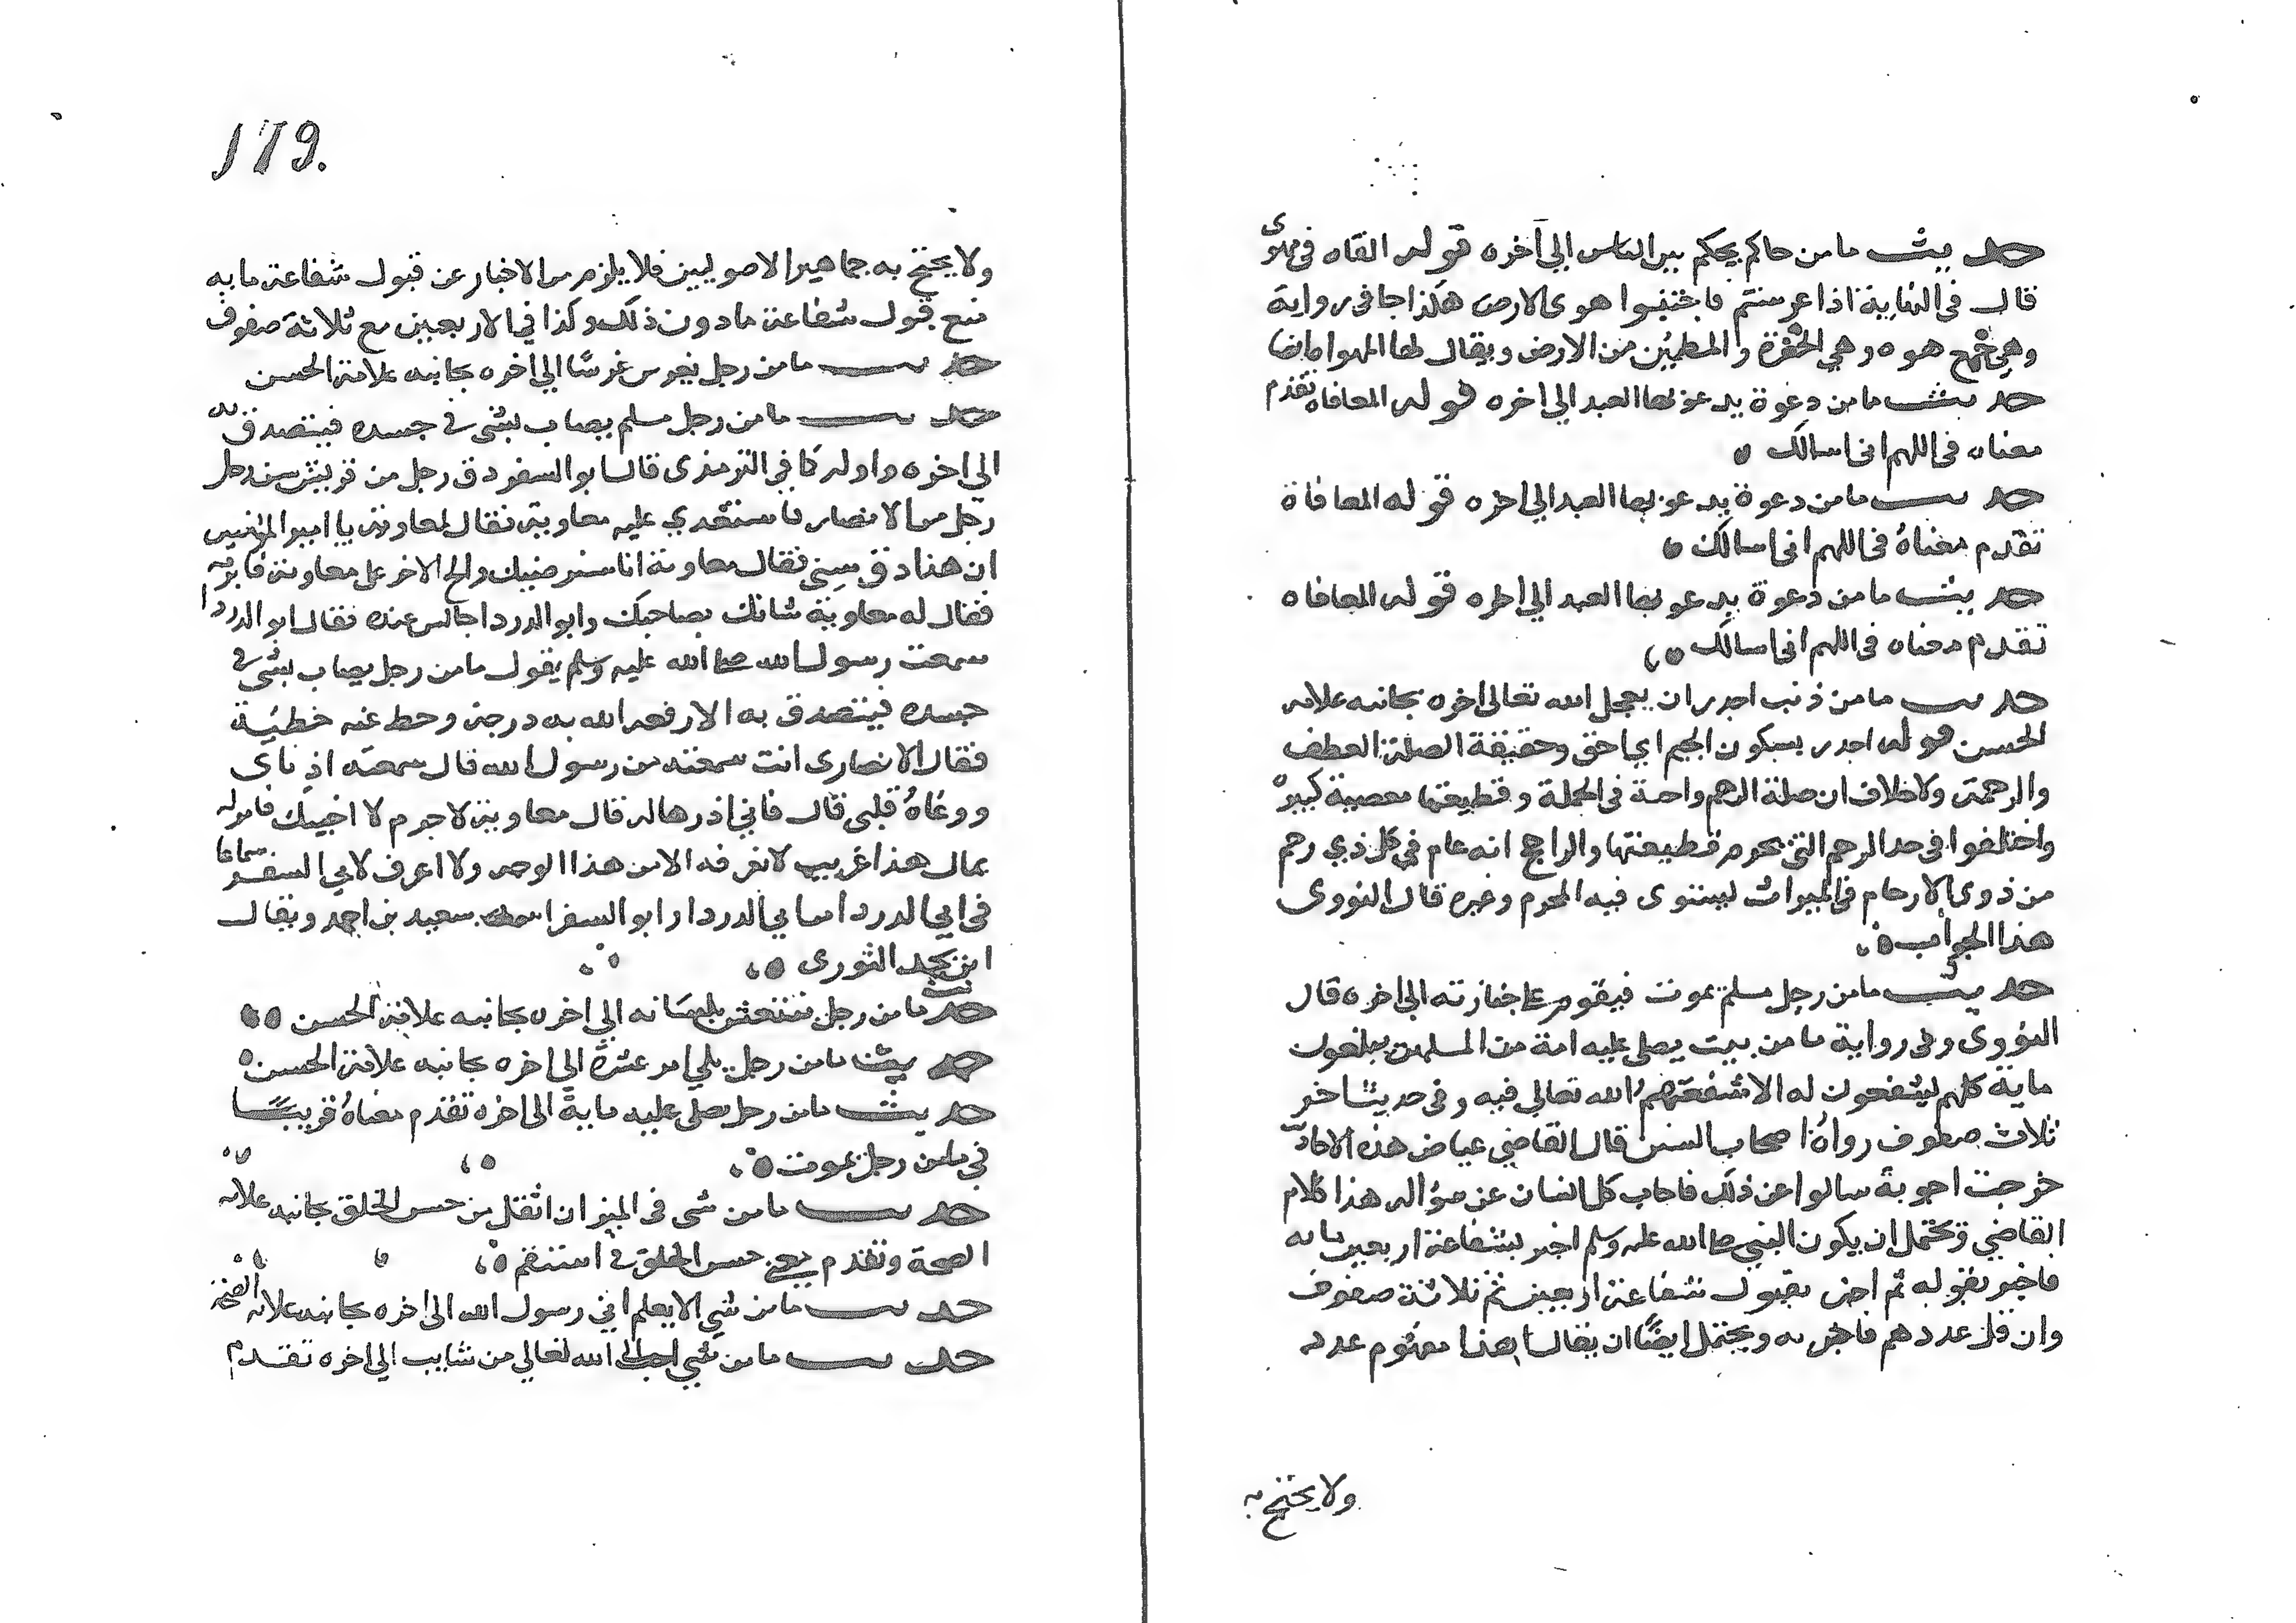 حديث ما من حاكم يحكم بين الناس الي اخره قوله القاه في مهوى
قال في النهاية اذا عرستم فاجتنبوا هوى الارض هكذا جا في رواية
وهي جمع هوه وهي الحفرة والمطمئن من الارض ويقال لها المهواه ايضا
حديث ما من دعوة يدعو بها العبد الي اخره قوله المعافاه تقدم
معناه في اللهم اني اسالك ه
حديث ما من دعوة يدعو بها العبد الي اخره قوله المعافاة
تقدم معناهُ في اللهم اني اسالك ه
حديث ما من دعوة يدعو بها العبد الي اخره قوله المعافاه
تقدم معناه في اللهم اني اسالك ه
حديث ما من ذنب اجدر ان يعجل الله تعالى اخره بجانبه علامه
الحسن قوله اجدر بسكون الجيم اي احق وحقيقة الصلة العطف
والرحمة ولا خلاف ان صلة الرحم واجبة في الجملة وقطيعتها معصية كبيرة
واختلفوا في حد الرحم التي يحرم قطيعتها والراجح انه عام في كل ذي رحم
من ذوي الارحام في الميراث ليستوى فيه المحرم وغيره قال النووى
هذا الجواب ه
حديث ما من رجل مسلم يموت فيقوم على جنازته الي اخره قال
النووى وفي رواية ما من ميت يصلى عليه امة من المسلمين يبلغون
ماية كلهم ليشفعون له الا شفعهم الله تعالي فيه وفي حديث اخر
ثلاث صفوف رواهُ اصحاب السنن قال القاضي عياض هذه الاحاديث
خرجت اجوبة سالوا عن ذلك فاجاب كل انسان عن سؤاله هذا كلام
القاضي ويحتمل ان يكون النبي صلى الله عليه وسلم اخبر بشفاعة اربعين
فاخبر بقوله ثم اخبر بقبول شفاعة اربعين ثم ثلاثة صفوف
وان قل عددهم فاخبر به ويحتمل ايضًا ان يقال هذا مفهوم عدد
ولا يحتج به
179.
ولا يحتج به جماهير الاصوليين فلا يلزم من الاخبار عن قبول شفاعة مايه
منع قبول شفاعة ما دون ذلك وكذا في الاربعين مع ثلاثة صفوف
حديث ما من رجل يغرس غرسًا الي اخره بجانبه علامة الحسن
حديث ما من رجل مسلم يصاب بشئ في جسده فيتصدق به
الي اخره واوله كما في الترمذى قال ابو السفر دق رجل من قريش سن رجل
رجل من الانصار فاستعدي عليه معاوية فقال لمعاوية يا امير المؤمنين
ان هذا دق سِني فقال معاوية انا سنرضيك والح الاخر على معاوية فابرمه
فقال له معاوية شانك بصاحبك وابو الدردا جالس عنده فقال ابو الدردا
سمعت رسول الله صلى الله عليه وسلم يقول ما من رجل يصاب بشئ في
جسده فيتصدق به الا رفعه الله به درجة وحط عنه خطيئة
فقال الانصارى انت سمعته من رسول الله قال سمعته اذناى
ووعاهُ قلبى قال فاني اذرها له قال معاوية لا جرم لا اخيبك فامر له
بمال هذا غريب لا نعرفه الا من هذا الوجه ولا اعرف لابي السفر سماعا
في ابي الدردا من ابي الدردا وابو السفر اسمه سعيد بن احمد ويقال
ابن يحمد الثورى ه
حديث ما من رجل ينعش بلسانه الي اخره بجانبه علامة الحسن ه
حديث ما من رجل يلي امر عشرة الي اخره بجانبه علامة الحسن ه
حديث ما من رجل يصلى عليه مايةً الى اخره تقدم معناهُ قريبًا
في ما من رجل يموت ه
حديث ما من شى في الميزان اثقل من حسن الخلق بجانبه علامه
الصحة وتقدم معنى حسن الخلق في استقم ه
حديث ما من شي الا يعلم اني رسول الله الى اخره بجانبه علامه الصحة
حديث ما من شي احب الي الله تعالي من شايب الي اخره تقدم